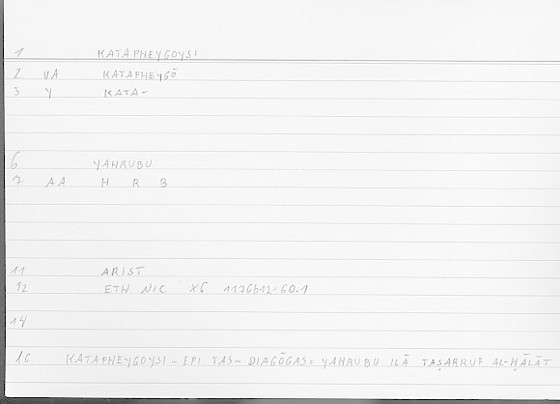 1 KATAPHEYGOYSI
2 VA KATAPHEYGŌ
3 Y KATA-
6 YAHRUBU
7 AA H R B
11 ARIST
12 ETH NIC X6 1176b12-60.1
14
16 KATAPHEYGOYSI - EPI TAS - DIAGŌGAS = YAHRUBU ILĀ TAṢARRUF AL-ḤĀLĀT